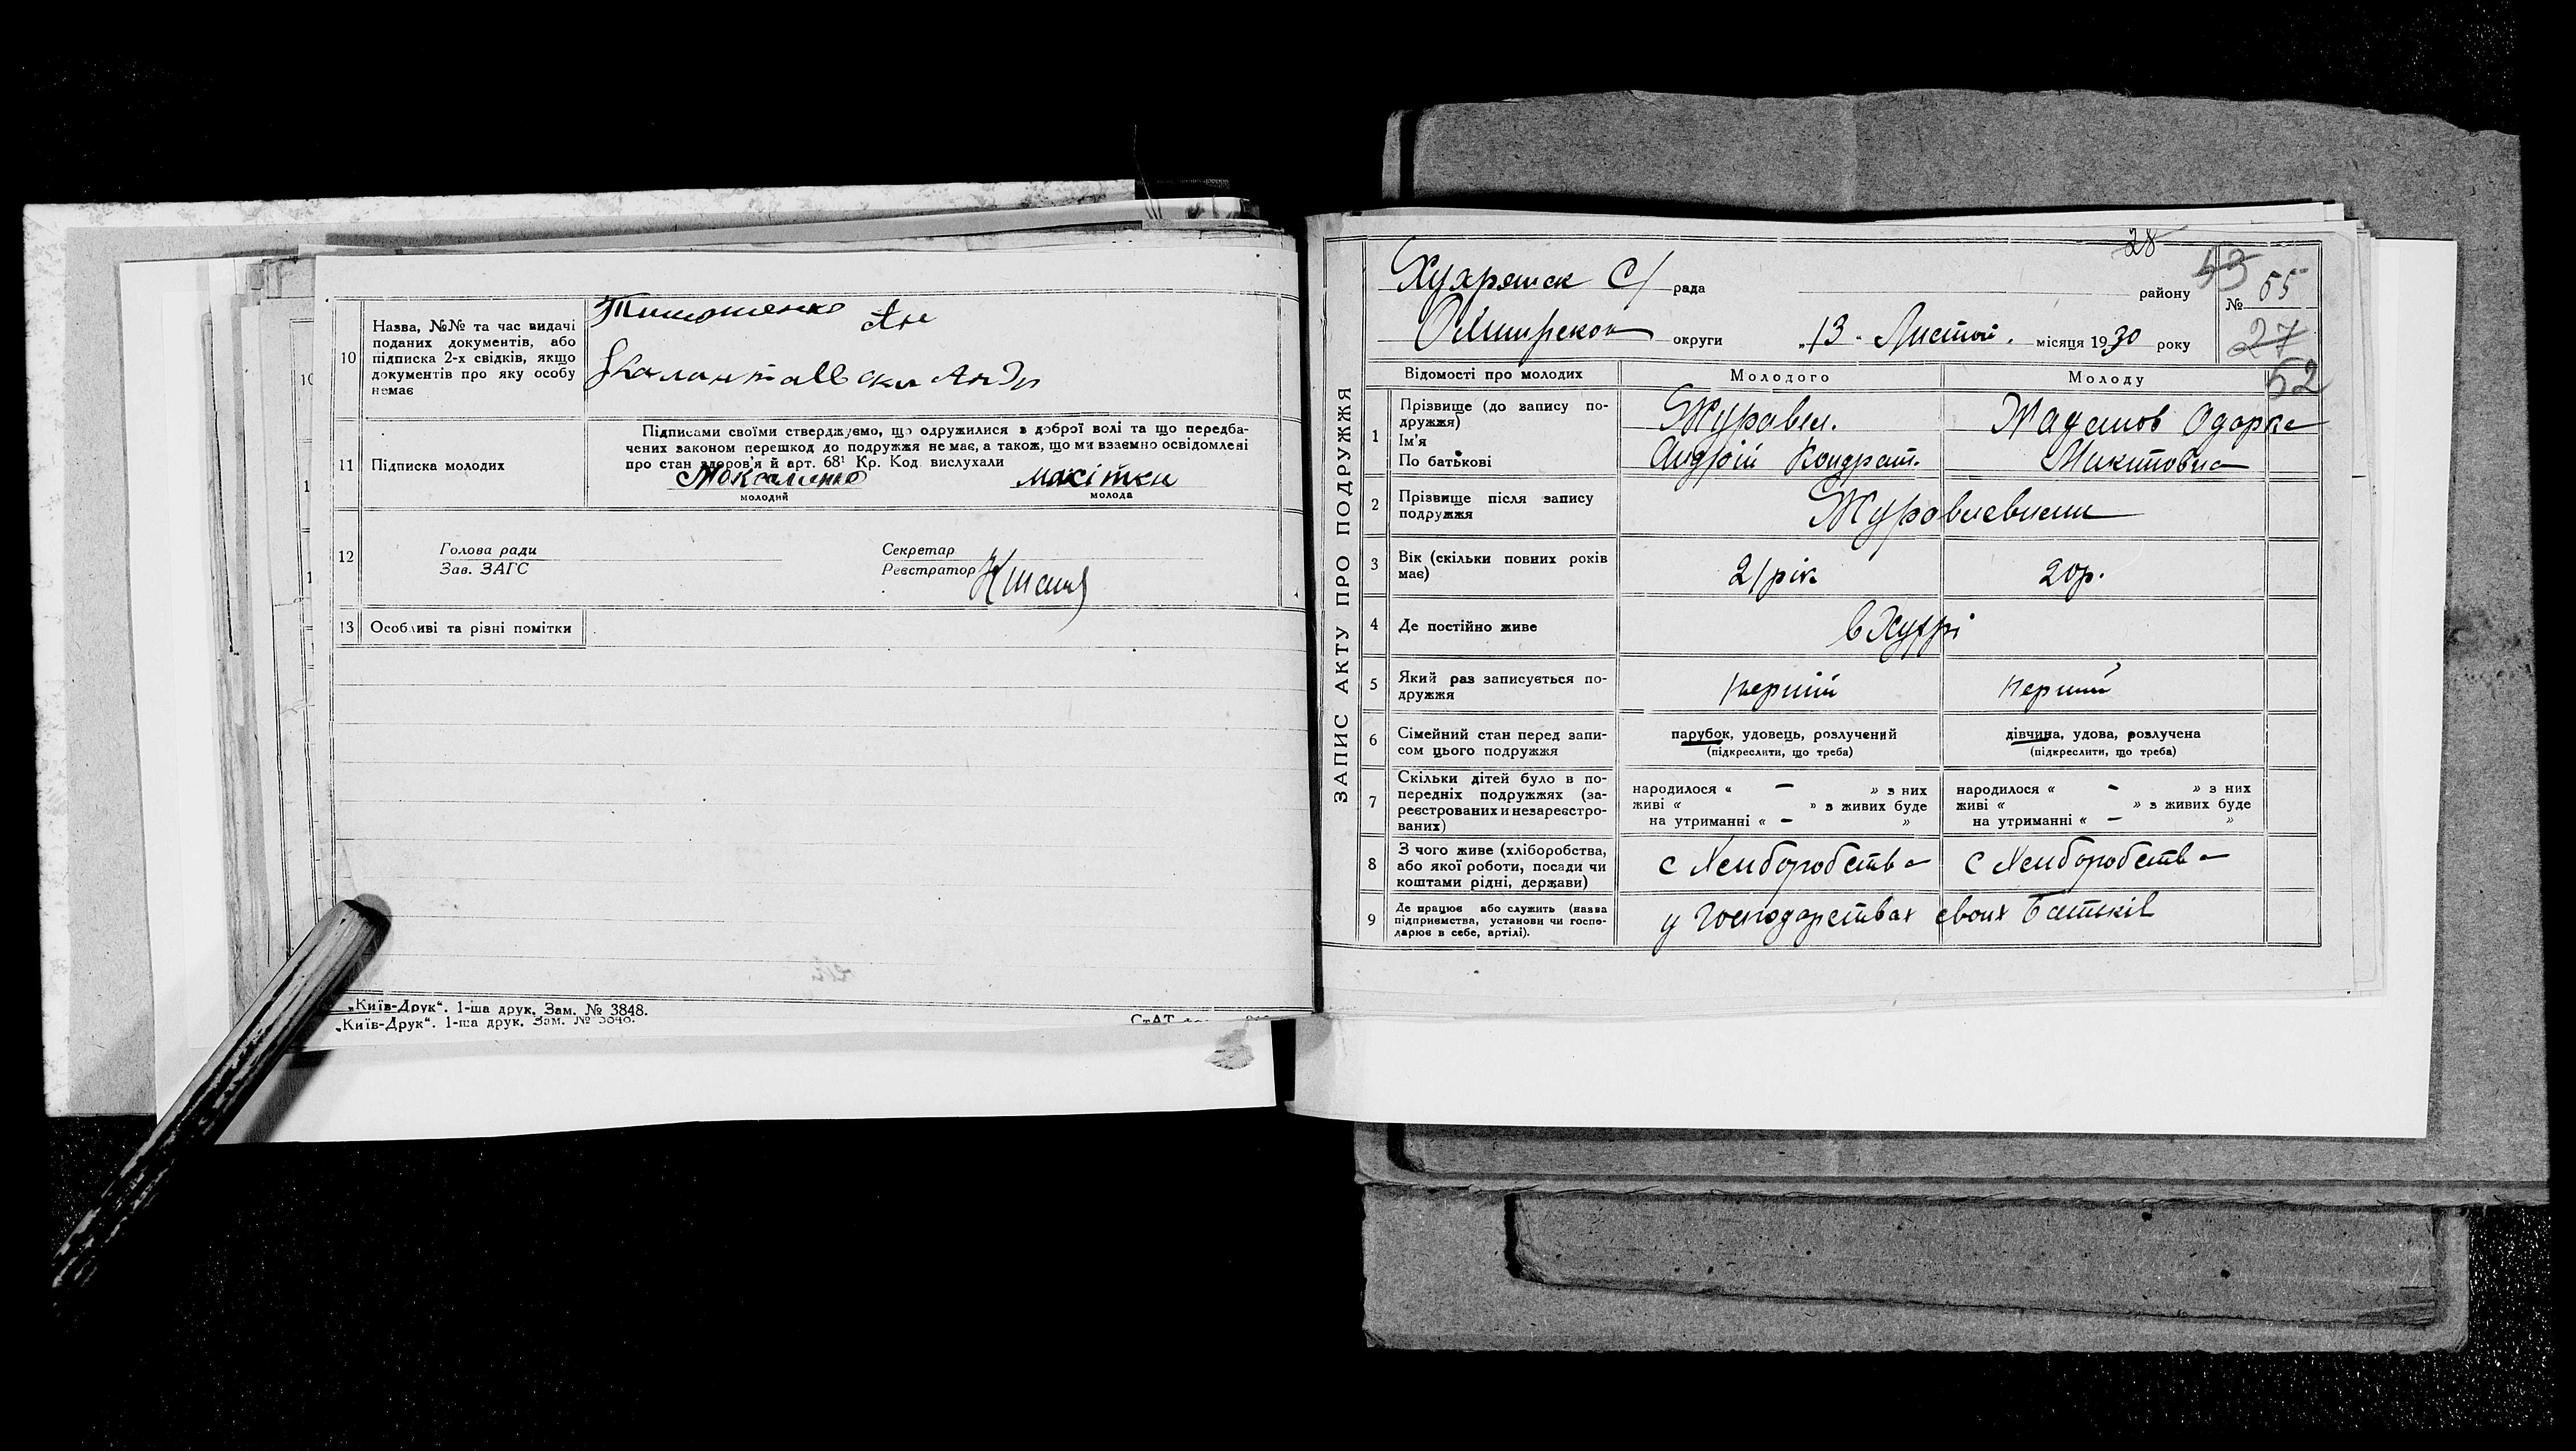 10 Назва, №№ та час видачі
поданих документів, або
підписка 2-х свідків, якщо
документів про яку особу
немає
Тимошенко Ан
11 Підписка молодих
Підписами своїми стверджуємо, що одружилися з доброї волі та що передба-
чених законом перешкод до подружжя немає, а також, що ми взаємно освідомлені
про стан здоров'я й арт. 68¹ Кр. Код. вислухали
молодий
молода
12 Голова ради
Зав. ЗАГС
Секретар
Реєстратор
13 Особливі та різні помітки
„Київ-Друк“. 1-ша друк. Зам. № 3848.
„Київ-Друк“. 1-ша друк. Зам. № 3848.
ЗАПИС АКТУ ПРО ПОДРУЖЖЯ
28
53
Хухрянск С/ рада району
№ 55
округи „13“ Листоп. місяця 1930 року
27
52
Відомості про молодих Молодого Молоду
1 Прізвище (до запису по-
дружжя)
Ім'я
По батькові
Журавел.
Андрій Кондрат.
Одарка
Микитовна
2 Прізвище після запису
подружжя
3 Вік (скільки повних років
має)
21 рік 20 р.
4 Де постійно живе
в Хутрі
5 Який раз записується по-
дружжя
перший перший
6 Сімейний стан перед запи-
сом цього подружжя
парубок, удовець, розлучений
(підкреслити, що треба)
дівчина, удова, розлучена
(підкреслити, що треба)
7 Скільки дітей було в по-
передніх подружжях (за-
реєстрованих и незареєстро-
ваних)
народилося « – » з них
живі « » з живих буде
на утриманні « – »
народилося « – » з них
живі « » з живих буде
на утриманні « – »
8 З чого живе (хліборобства,
або якої роботи, посади чи
коштами рідні, держави)
с Хлиборобства с Хлиборобства
9 Де працює або служить (назва
підприємства, установи чи госпо-
дарює в себе, артілі).
у господарствах своих Батьків